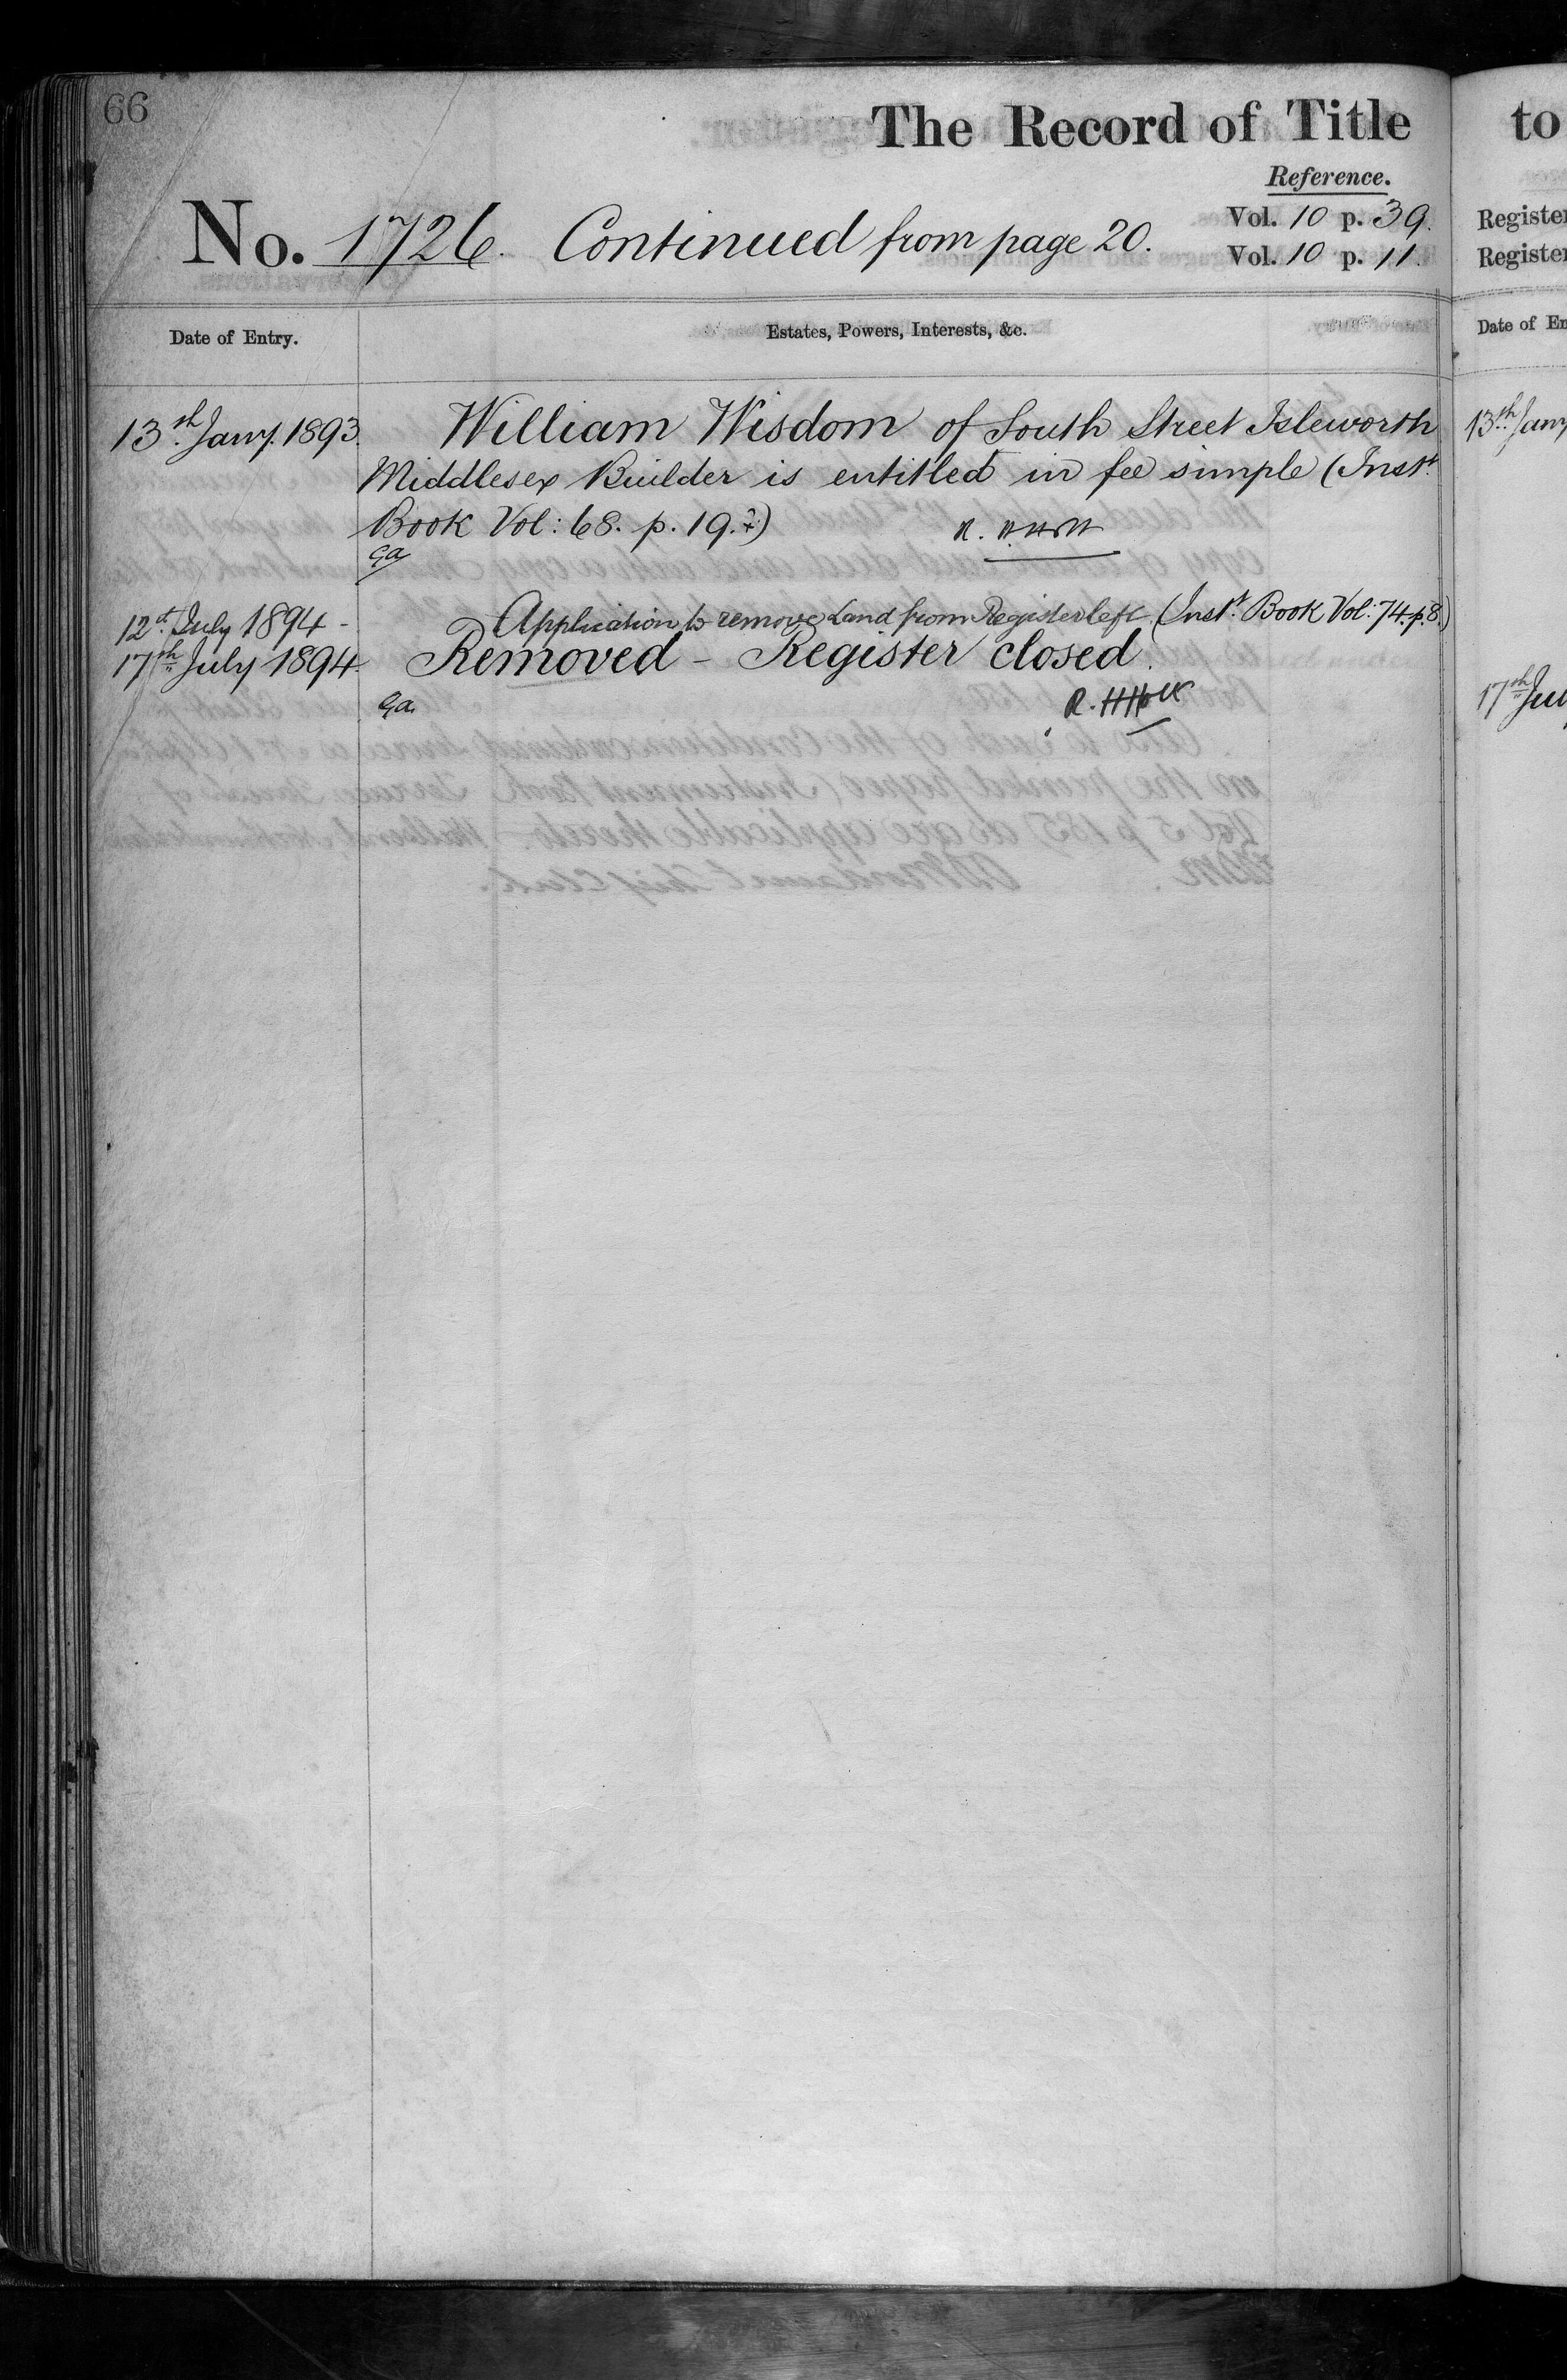 66
The Record of Title
Reference.
No. 1726. Continued from page 20.
Vol. 10 p. 39.
Vol. 10 p. 11.
Date of Entry.
Estates, Powers, Interests, &c.
13th Jany. 1893.
William Wisdom of South Street Isleworth
Middlesex Builder is entitled in fee simple (Inst.
Book Vol: 68. p. 19.
12th July 1894 -
Application to remove Land from Register left (Inst. Book Vol: 74. p. 8.)
17th July 1894.
Removed - Register closed.
Ga.
to
Register
Register
Date of En
13th Jany
17th Jul